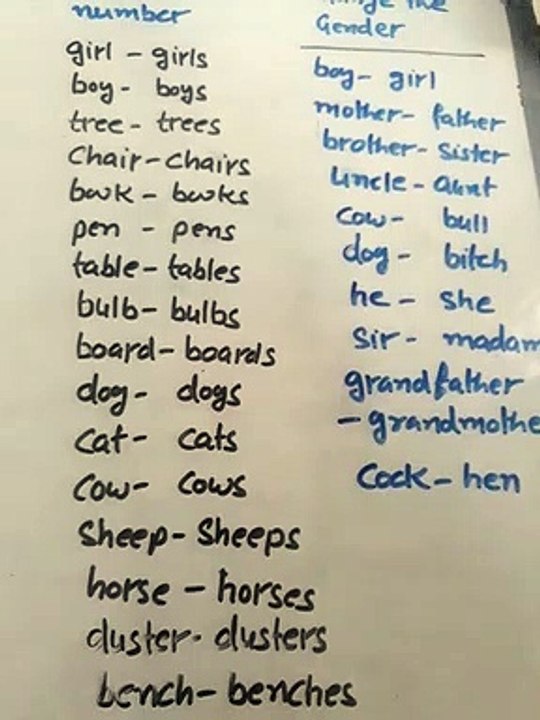 number
girl - girls
boy - boys
tree - trees
Chair - chairs
book - books
pen - pens
table - tables
bulb - bulbs
board - boards
dog - dogs
cat - cats
cow - cows
Sheep - Sheeps
horse - horses
duster - dusters
bench - benches
the
Gender
boy - girl
mother - father
brother - Sister
Uncle - aunt
cow - bull
dog - bitch
he - she
Sir - madam
grandfather
- grandmothe
Cock - hen